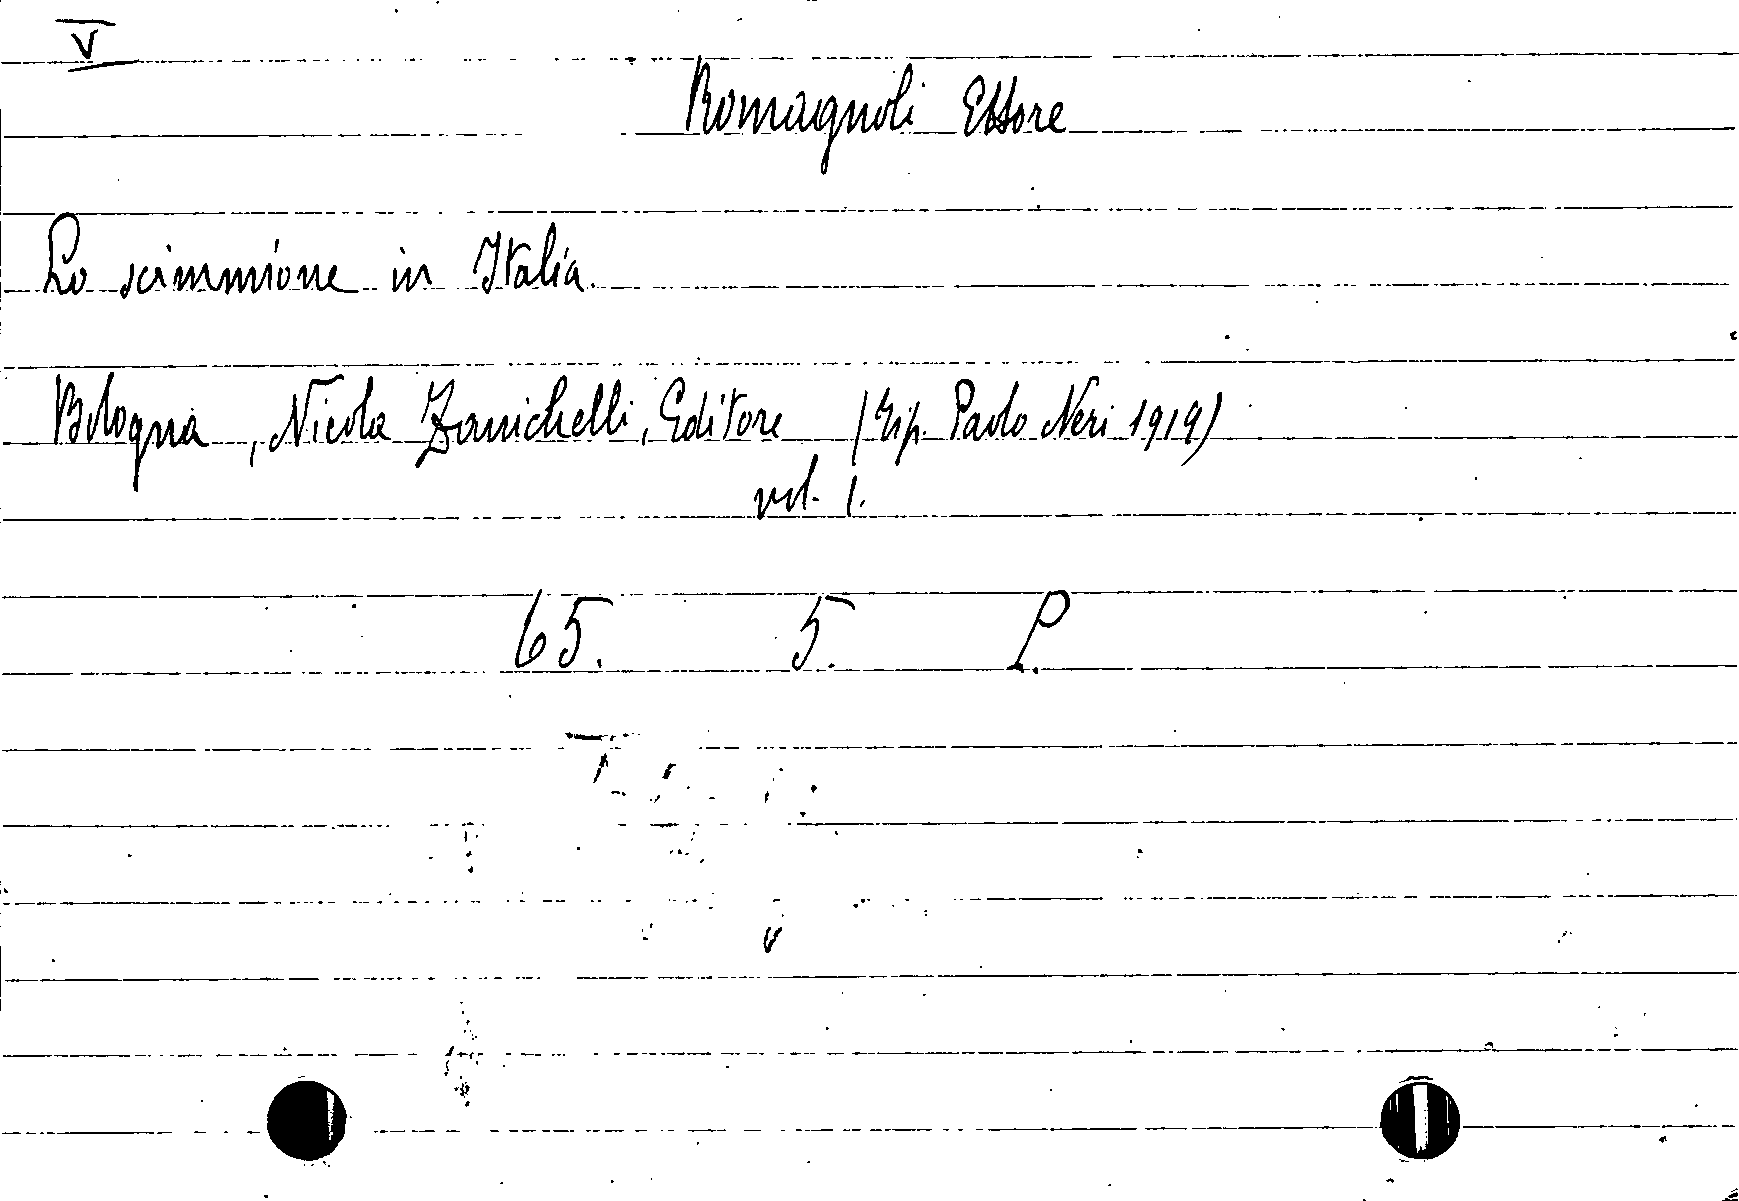 V
Romagnoli Ettore
Lo scimmione in Italia.
Bologna, Nicola Zanichelli, Editore (Tip. Paolo Neri 1919)
vol. 1.
65. 5. P.